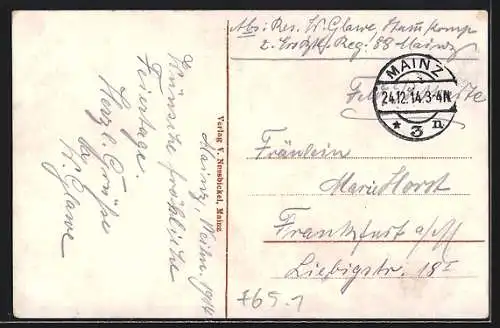 Mainz, Weihn. 1914
Wünsche fröhliche
Feiertage.
Herzl. Grüße
W. Glawe
Verlag V. Nussbickel, Mainz
Abs: Res. W. Glawe, Stam Komp
2. Ers. Reg: 88 Mainz
MAINZ
24.12.14.3-4N.
* 3 n
Feldpostkarte
Fräulein
Marie Horst
Frankfurt a/M
Liebigstr. 18 I
765.1